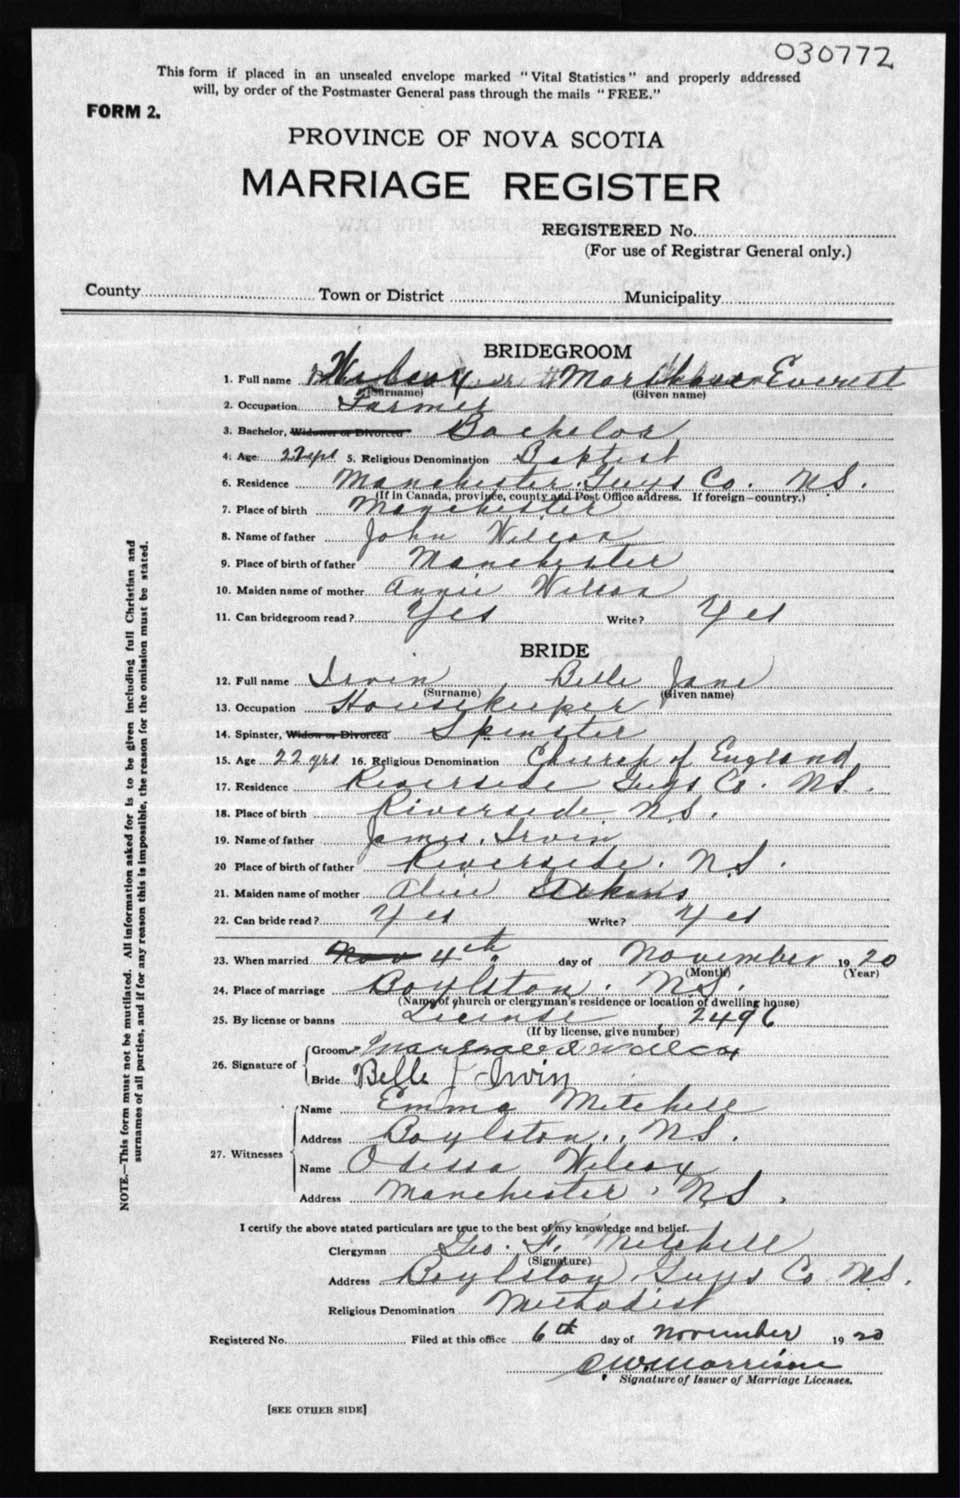 030772
This form if placed in an unsealed envelope marked "Vital Statistics" and properly addressed
will, by order of the Postmaster General pass through the mails "FREE."
FORM 2.
PROVINCE OF NOVA SCOTIA
MARRIAGE REGISTER
REGISTERED No.
(For use of Registrar General only.)
County Town or District Municipality
BRIDEGROOM
1. Full name Wilcox Everett
(Surname) (Given name)
2. Occupation Farmer
3. Bachelor, Widower or Divorced Bachelor
4. Age 22 yrs 5. Religious Denomination Baptist
6. Residence Manchester Guys Co. N.S.
(If in Canada, province, county and Post Office address. If foreign—country.)
7. Place of birth Manchester
8. Name of father John Wilcox
9. Place of birth of father Manchester
10. Maiden name of mother Annie
11. Can bridegroom read? Yes Write? Yes
BRIDE
12. Full name Irvin Belle Jane
(Surname) (Given name)
13. Occupation Housekeeper
14. Spinster, Widow or Divorced Spinster
15. Age 22 yrs 16. Religious Denomination Church of England
17. Residence Riverside Guys Co. N.S.
18. Place of birth Riverside. N.S.
19. Name of father James. Irvin
20 Place of birth of father Riverside. N.S.
21. Maiden name of mother Alice
22. Can bride read? Yes Write? Yes
23. When married Nov 4th day of November 1920
(Month) (Year)
24. Place of marriage Boylston. N.S.
(Name of church or clergyman's residence or location of dwelling house)
25. By license or banns License 2496
(If by license, give number)
26. Signature of Groom Wilcox
Bride Belle J Irvin
27. Witnesses
Name Emma Mitchell
Address Boylston, N.S.
Name Odessa Wilcox
Address Manchester, N.S.
I certify the above stated particulars are true to the best of my knowledge and belief.
Clergyman Geo. F. Mitchell
(Signature)
Address Boylston, Guys Co N.S.
Religious Denomination Methodist
Registered No. Filed at this office 6th day of November 1920
Morrison
Signature of Issuer of Marriage Licenses.
[SEE OTHER SIDE]
NOTE.—This form must not be mutilated. All information asked for is to be given including full Christian and
surnames of all parties, and if for any reason this is impossible, the reason for the omission must be stated.